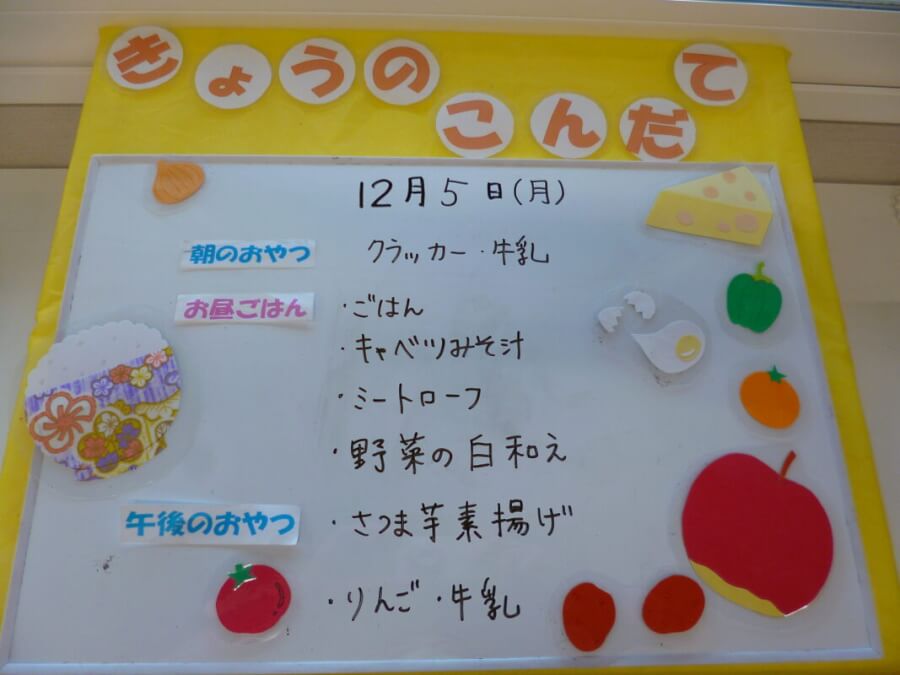 きょうの
こんだて
12月5日(月)
朝のおやつ クラッカー・牛乳
お昼ごはん ・ごはん
・キャベツみそ汁
・ミートローフ
・野菜の白和え
午後のおやつ ・さつま芋素揚げ
・りんご・牛乳